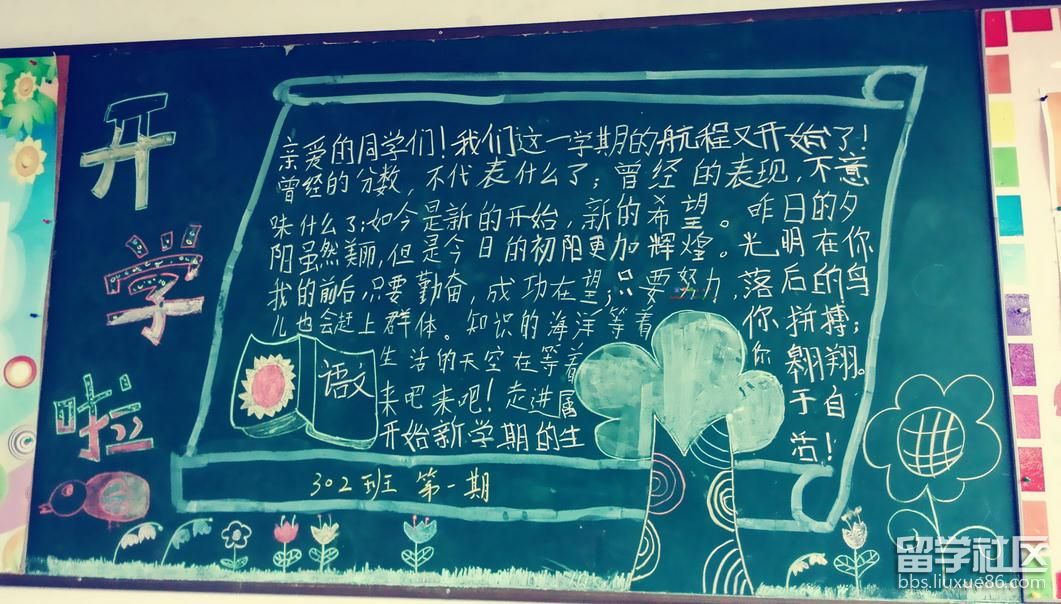 开学啦
亲爱的同学们！我们这一学期的航程又开始了！
曾经的分数，不代表什么了；曾经的表现，不意
味什么了；如今是新的开始，新的希望。昨日的夕
阳虽然美丽，但是今日的初阳更加辉煌。光明在你
我的前后，只要勤奋，成功在望；只要努力，落后的鸟
儿也会赶上群体。知识的海洋等着你拼搏；
生活的天空在等着你翱翔。
来吧来吧！走进属于自
开始新学期的生活！
语文
302班 第一期
留学社区
bbs.liuxue86.com